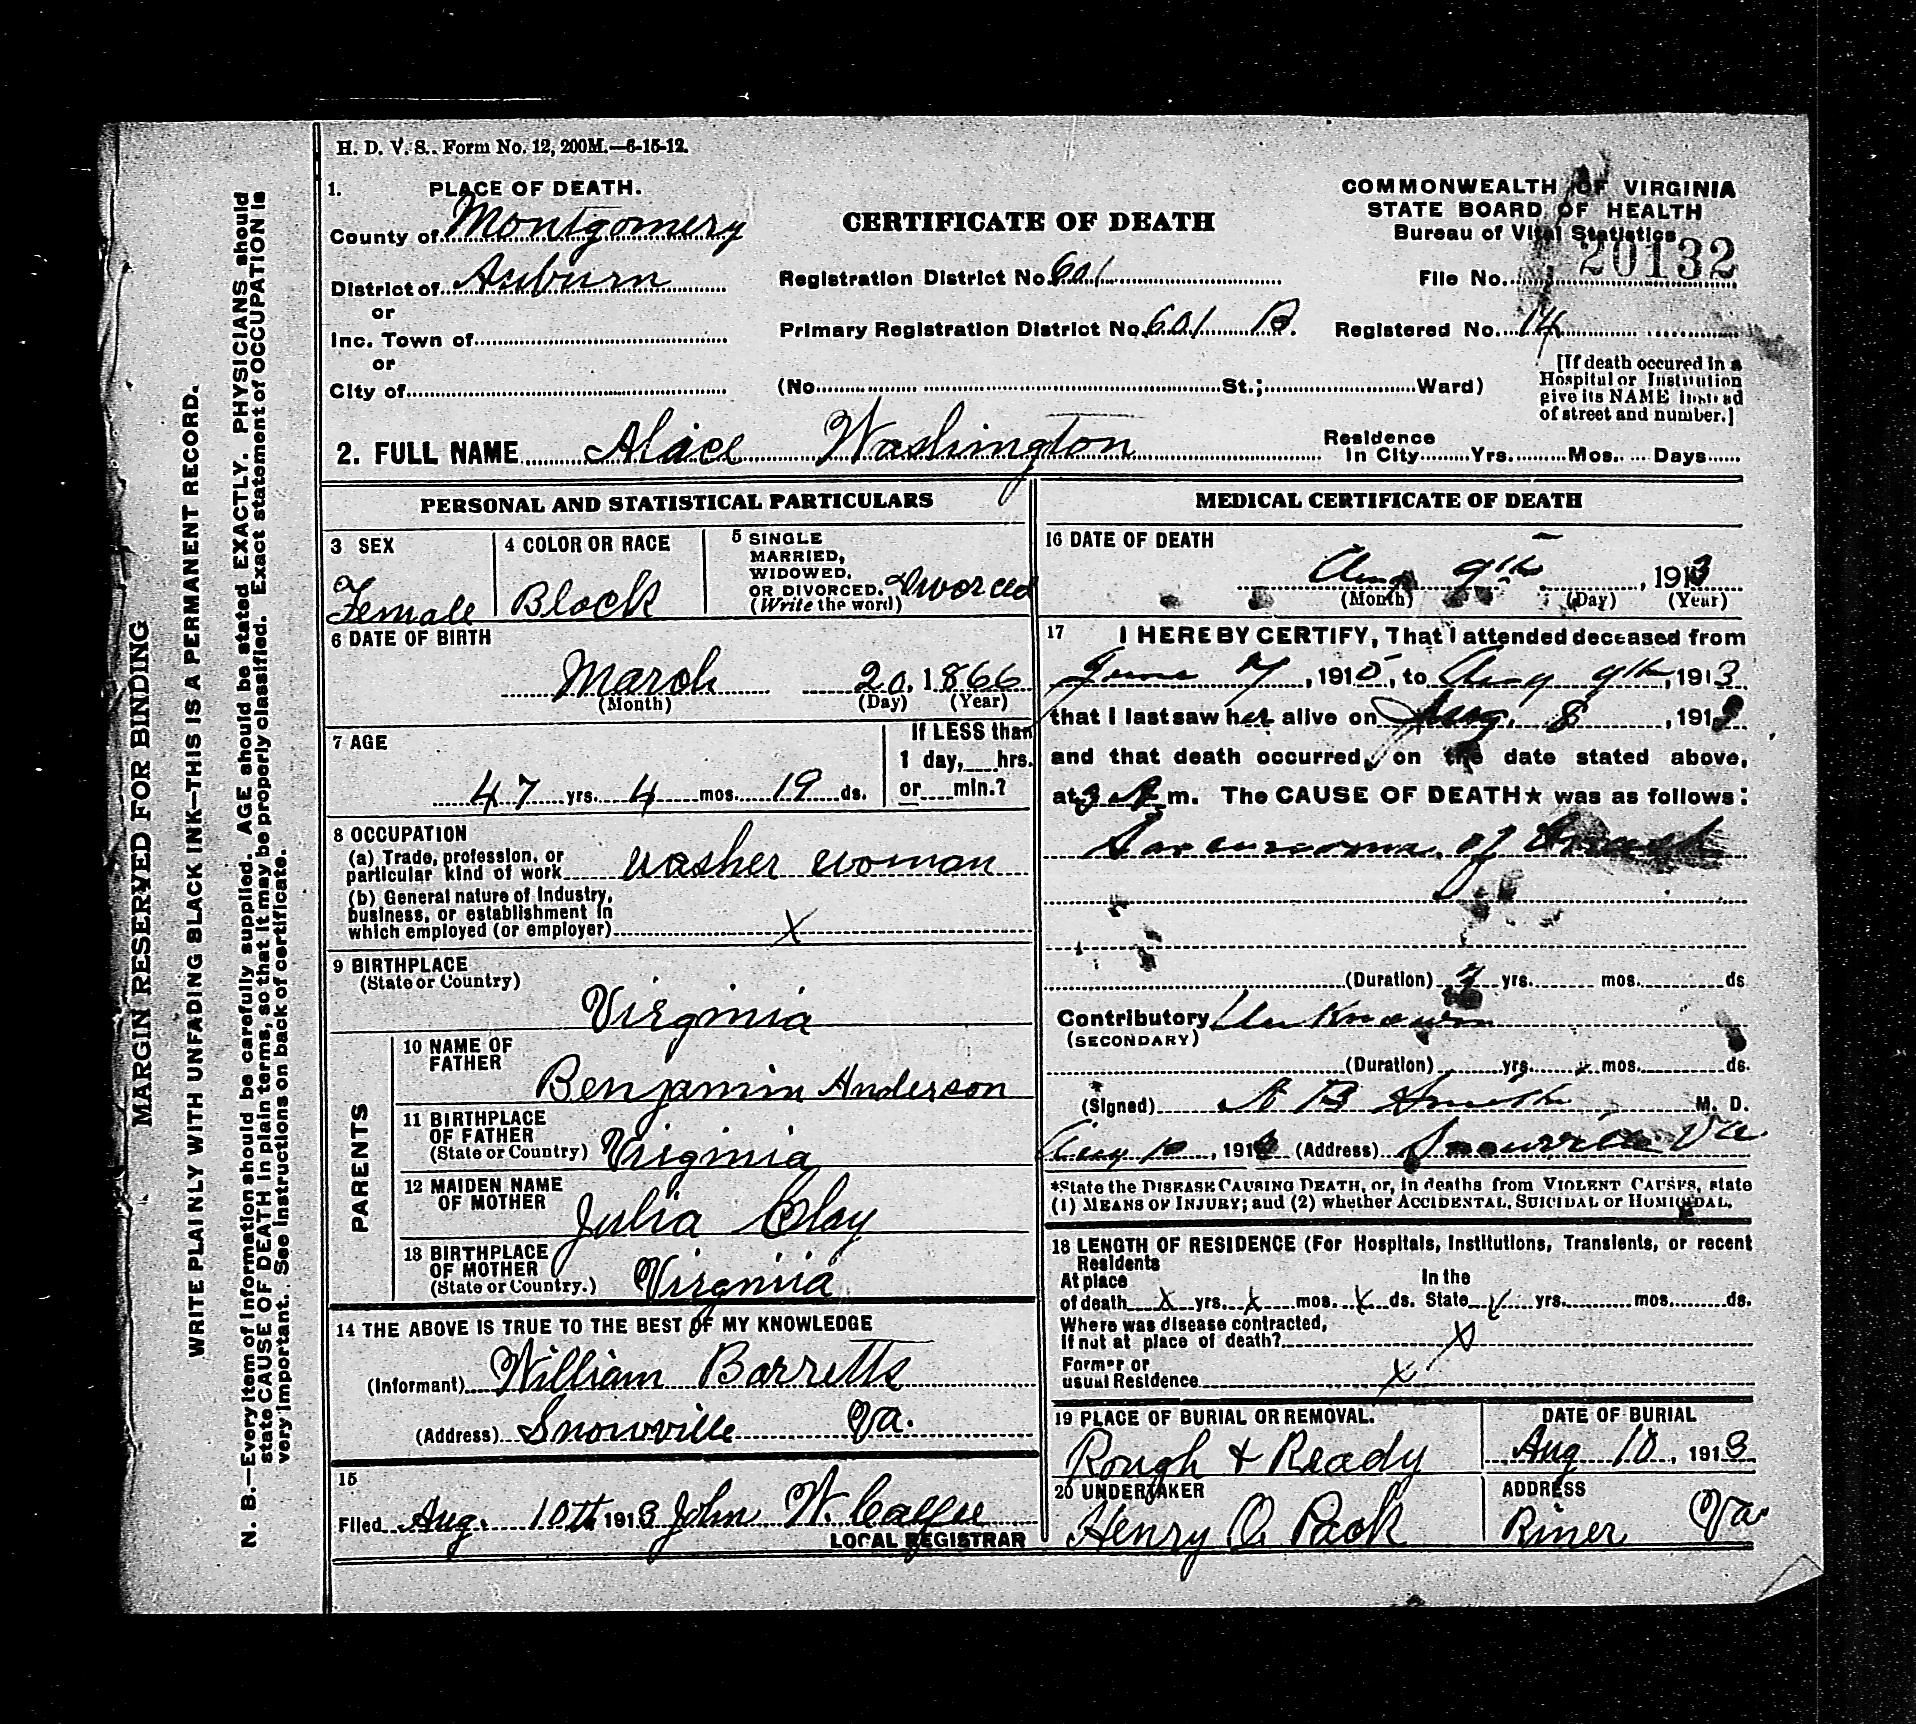 H. D. V. S. Form No. 12, 200M.—6-15-12.
1. PLACE OF DEATH.
County of Montgomery
District of Auburn
or
Inc. Town of
or
City of
CERTIFICATE OF DEATH
Registration District No. 601
Primary Registration District No. 601 B.
(No. St.; Ward)
COMMONWEALTH OF VIRGINIA
STATE BOARD OF HEALTH
Bureau of Vital Statistics
File No. 20132
Registered No. 14
[If death occured in a
Hospital or Institution
give its NAME instead
of street and number.]
2. FULL NAME Aliace Washington
Residence
In City Yrs. Mos. Days
PERSONAL AND STATISTICAL PARTICULARS
3 SEX
Female
4 COLOR OR RACE
Black
5 SINGLE
MARRIED,
WIDOWED,
OR DIVORCED. Divorced
(Write the word)
6 DATE OF BIRTH
March 20, 1866
(Month) (Day) (Year)
7 AGE
47 yrs. 4 mos. 19 ds.
If LESS than
1 day, hrs.
or min.?
8 OCCUPATION
(a) Trade, profession, or
particular kind of work washer woman
(b) General nature of Industry,
business, or establishment in
which employed (or employer) X
9 BIRTHPLACE
(State or Country)
Virginia
PARENTS
10 NAME OF
FATHER
Benjamin Anderson
11 BIRTHPLACE
OF FATHER
(State or Country) Virginia
12 MAIDEN NAME
OF MOTHER
Julia Clay
13 BIRTHPLACE
OF MOTHER
(State or Country.) Virginia
14 THE ABOVE IS TRUE TO THE BEST OF MY KNOWLEDGE
(Informant) William Barretts
(Address) Snowville Va.
15
Filed Aug. 10th 1913 John W. Calfee
LOCAL REGISTRAR
MEDICAL CERTIFICATE OF DEATH
16 DATE OF DEATH
Aug 9th, 1913
(Month) (Day) (Year)
17 I HEREBY CERTIFY, That I attended deceased from
June 7, 191, to Aug 9th, 1913
that I last saw her alive on Aug. 8, 1913
and that death occurred, on the date stated above,
at 3 A m. The CAUSE OF DEATH★ was as follows:
of
(Duration) yrs. mos. ds
Contributory Unknown
(SECONDARY)
(Duration) yrs. mos. ds.
(Signed) A B Smith M. D.
Aug 10, 1913 (Address) Snowville Va
*State the DISEASE CAUSING DEATH, or, in deaths from VIOLENT CAUSES, state
(1) MEANS OF INJURY; and (2) whether ACCIDENTAL, SUICIDAL or HOMICIDAL.
18 LENGTH OF RESIDENCE (For Hospitals, Institutions, Transients, or recent
Residents
At place In the
of death X yrs. X mos. X ds. State X yrs. mos. ds.
Where was disease contracted,
If not at place of death? X
Former or
usual Residence X
19 PLACE OF BURIAL OR REMOVAL.
Rough & Ready
DATE OF BURIAL
Aug 10, 1913
20 UNDERTAKER
Henry O. Pack
ADDRESS
Riner Va.
MARGIN RESERVED FOR BINDING
WRITE PLAINLY WITH UNFADING BLACK INK—THIS IS A PERMANENT RECORD.
N. B.—Every item of information should be carefully supplied. AGE should be stated EXACTLY. PHYSICIANS should
state CAUSE OF DEATH in plain terms, so that it may be properly classified. Exact statement of OCCUPATION is
very important. See instructions on back of certificate.